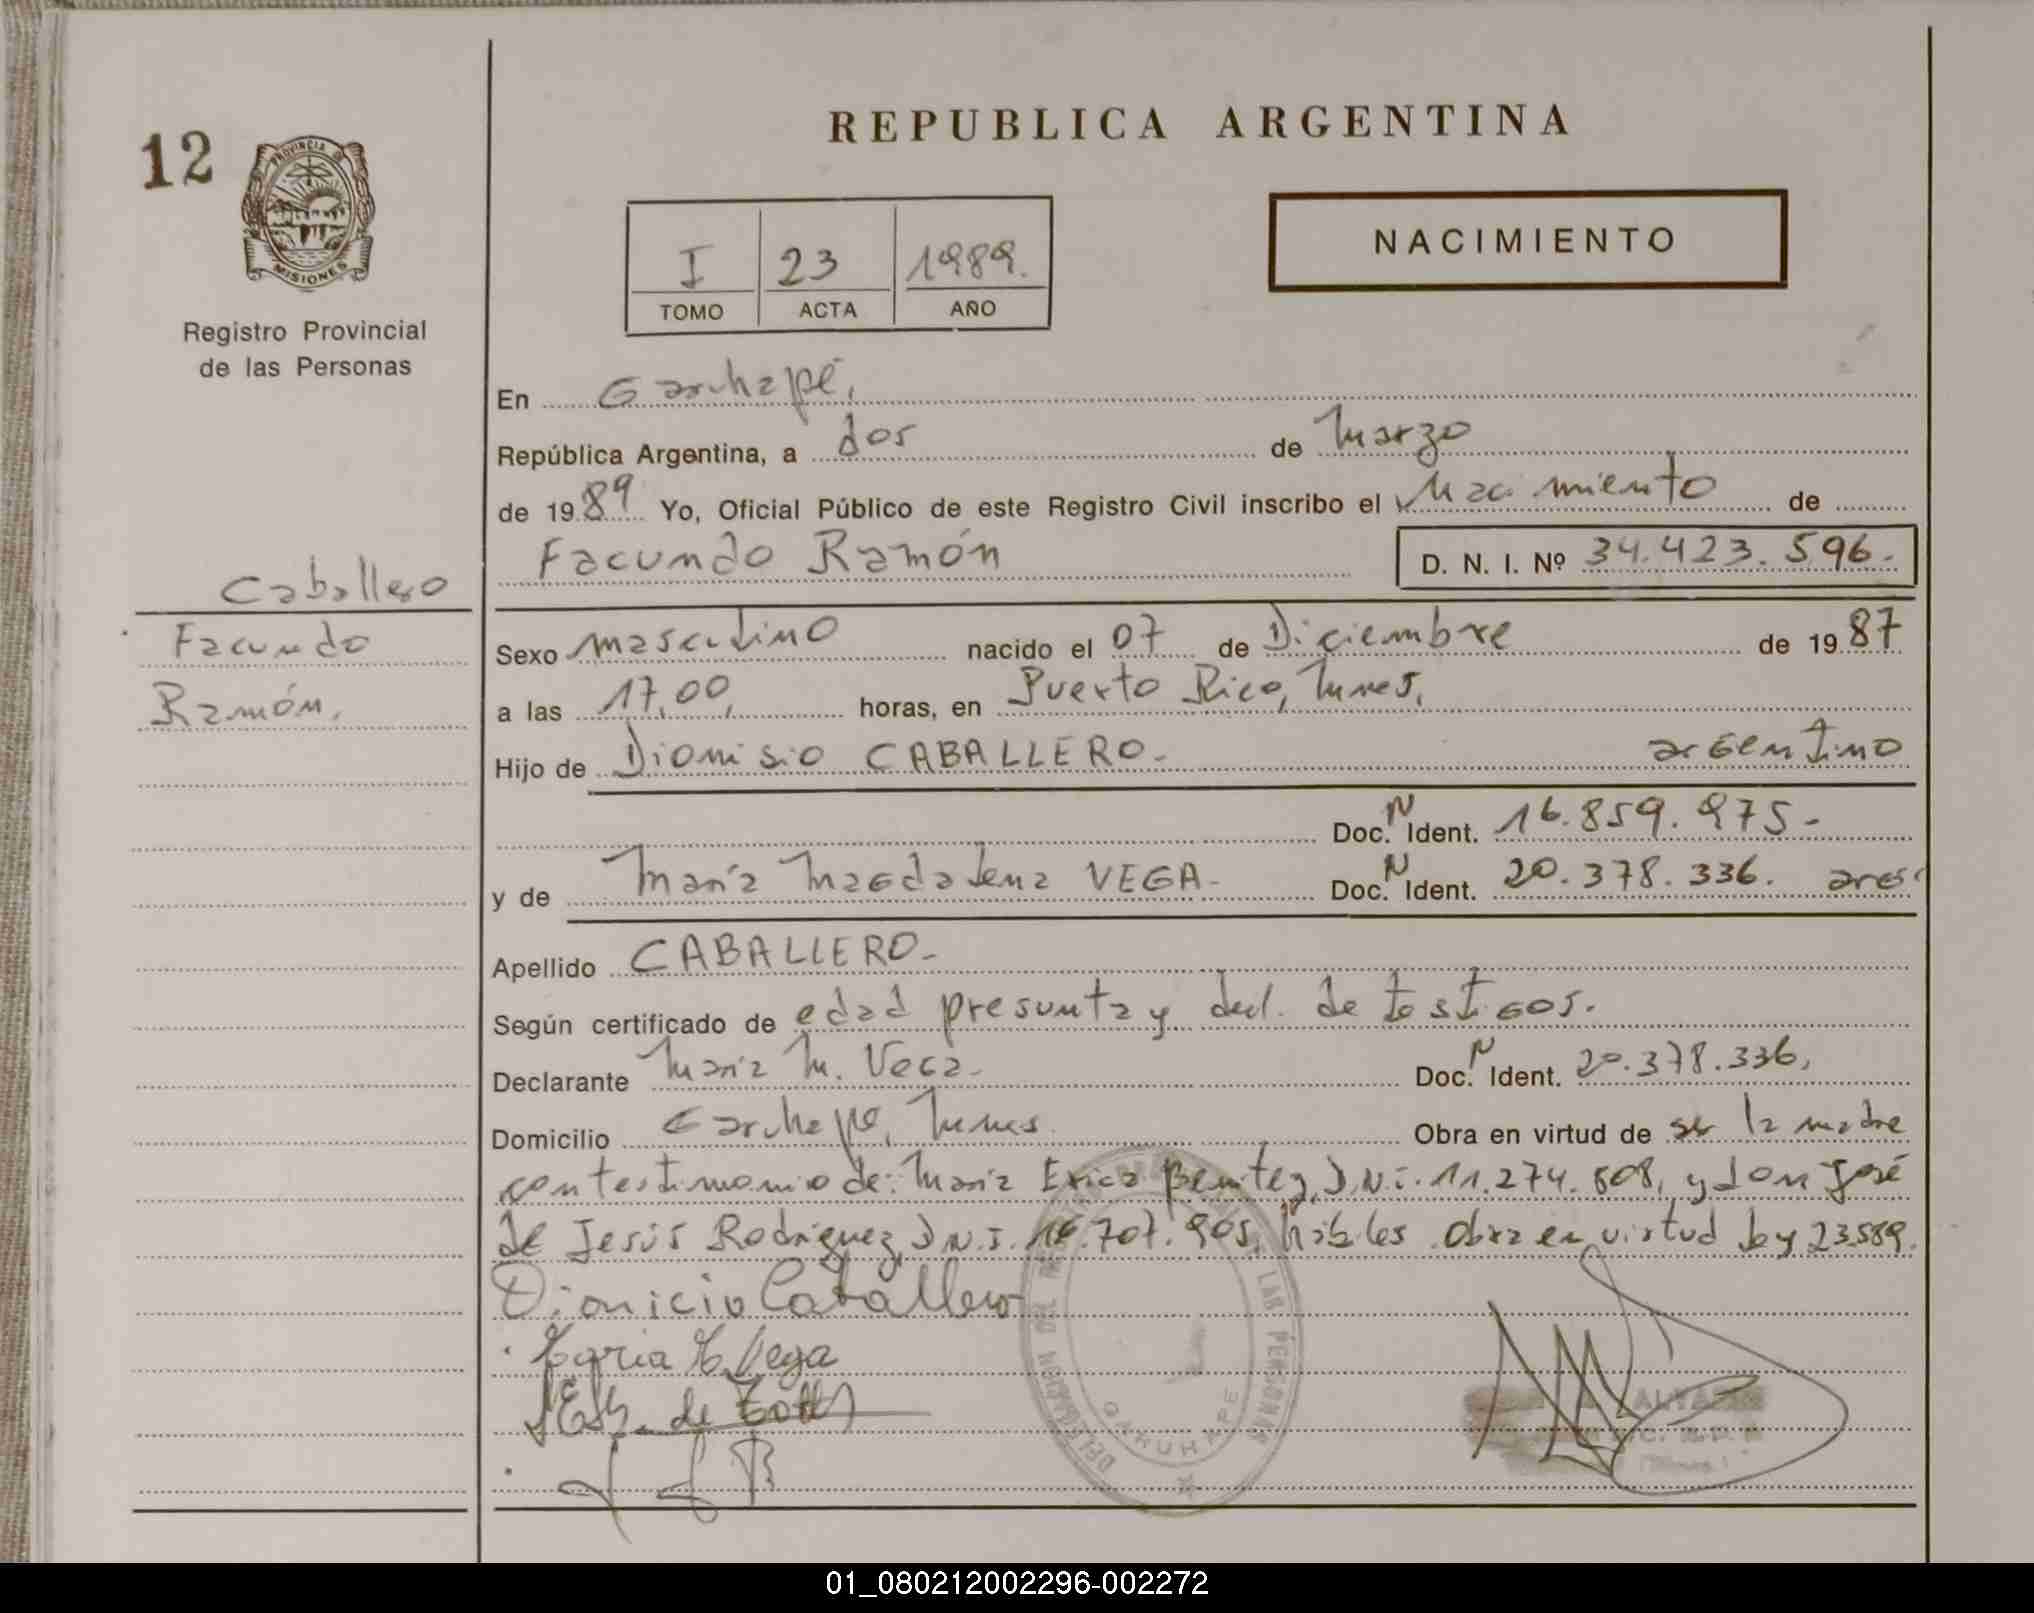 REPUBLICA ARGENTINA
12
PROVINCIA DE
MISIONES
Registro Provincial
de las Personas
I 23 1989.
TOMO ACTA AÑO
NACIMIENTO
En Garuhapé,
República Argentina, a dos de Marzo
de 1989 Yo, Oficial Público de este Registro Civil inscribo el Nacimiento de
Facundo Ramón D. N. I. Nº 34.423.596.
Caballero
Facundo
Ramón.
Sexo masculino nacido el 07 de Diciembre de 1987
a las 17,00, horas, en Puerto Rico, Mnes,
Hijo de Dionisio CABALLERO- argentino
Doc. N Ident. 16.859.975-
y de María Magdalena VEGA- Doc. N Ident. 20.378.336. arg.
Apellido CABALLERO-
Según certificado de edad presunta y decl. de testigos.
Declarante María M. Vega- Doc. N Ident. 20.378.336,
Domicilio Garuhapé, Mnes. Obra en virtud de ser la madre
con testimonio de: María Erica Benitez, D.N.I. 11.274.608, y don José
de Jesús Rodriguez, D.N.I. 16.707.905, hábiles. Obra en virtud ley 23.589.
Dionicio Caballero
Maria M. Vega
DELEGACION DEL LAS PERSONAS
GARUHAPE
01_080212002296-002272